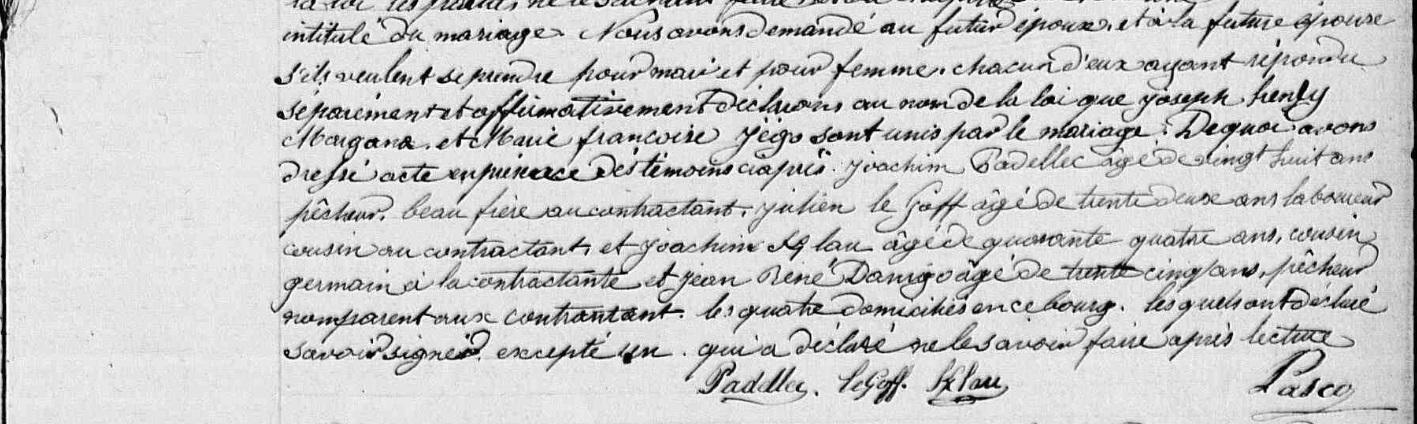 la loi
intitulé du mariage. Nous avons demandé au futur époux, et à la future épouse
s'ils veulent se prendre pour mari et pour femme. chacun d'eux ayant répondu
séparément et affirmativement déclarons au nom de la loi que Joseph henry
et Marie françoise Jégo sont unis par le mariage. De quoi avons
dressé acte en présence des témoins ciaprès. Joachim Padellec âgé de vingt huit ans
pêcheur, beau frère au contractant, Julien le Goff âgé de trente deux ans laboureur
cousin au contractant, et Joachim âgé de quarante quatre ans, cousin
germain à la contractante et Jean René Danigo âgé de trente cinq ans, pêcheur
nomparent aux contrantant. les quatre domiciliés en ce bourg. lesquels ont déclaré
savoir signer, excepté un. qui a déclaré ne le savoir faire après lecture
Paddlec. leGoff. Pasco